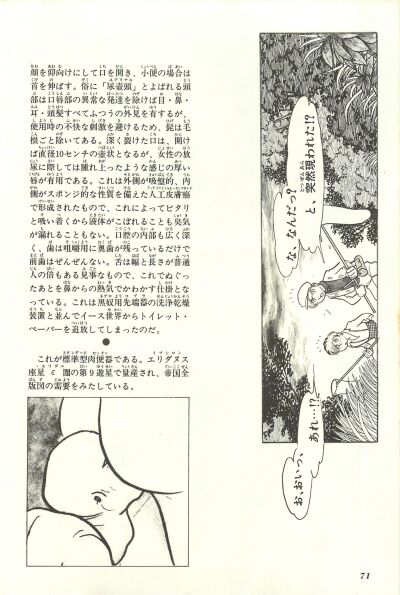 顔を仰向けにして口を開き、小便の場合は
首を伸ばす。俗に「尿壺頭」とよばれる頭
部は口唇部の異常な発達を除けば目・鼻・
耳・頭髪すべてふつうの外見を有するが、
使用時の不快な刺激を避けるため、髭は毛
根ごと除いてある。深く裂けた口は、開け
ば直径10センチの壺状となるが、女性の放
尿に際しては腫れ上ったような感じの厚い
唇が有用である。これは外側が吸盤的、内
側がスポンジ的な性質を備えた人工皮膚癌
で形成されたもので、これによってピタリ
と吸い着くから液体がこぼれることも臭気
が漏れることもない。口腔の内部も広く深
く、歯は咀嚼用に奥歯が残っているだけで
前歯はぜんぜんない。舌は幅と長さが普通
人の倍もある見事なもので、これでぬぐっ
たあとを鼻からの熱気でかわかす仕掛とな
っている。これは黒奴用先端器の洗浄乾燥
装置と並んでイース世界からトイレット・
ペーパーを追放してしまったのだ。
●
これが標準型肉便器である。エリダヌス
座星ε圏の第9遊星で量産され、帝国全
版図の需要をみたしている。
な、なんだっ?
と、突然現われた!?
あれ…!?
お、おいっ、
71